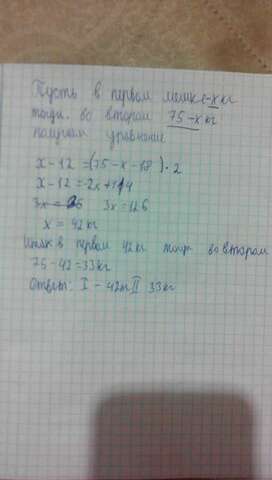 Пусть в первом мешке - x кг
тогда во втором 75-x кг
получим уравнение
x-12=(75-x-18)·2
x-12=-2x+114
3x=126
x=42кг
Итак в первом 42кг тогда во втором
75-42=33кг
Ответ: I - 42кг II 33кг